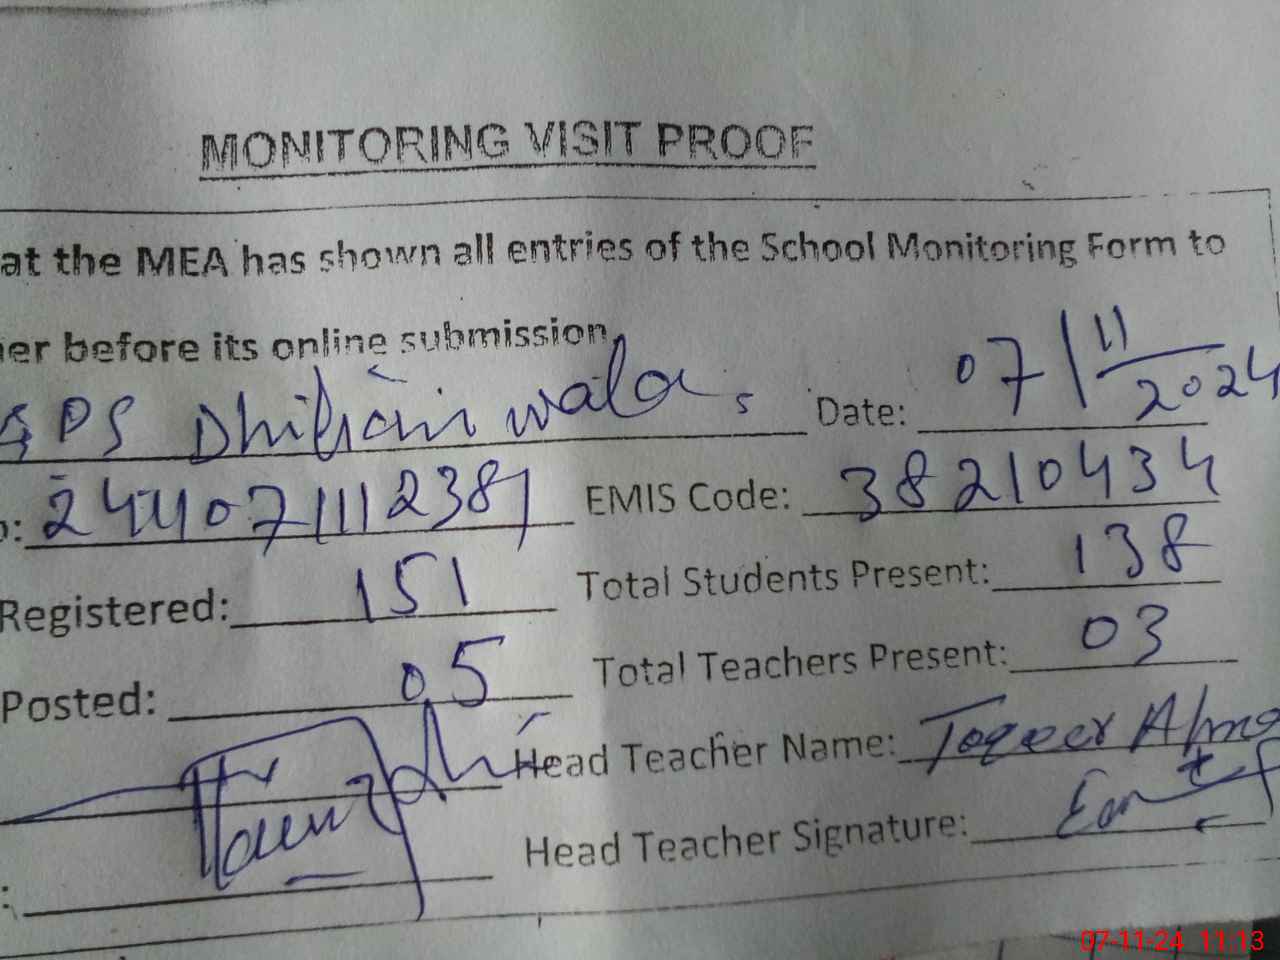 MONITORING VISIT PROOF
at the MEA has shown all entries of the School Monitoring Form to
er before its online submission.
GPS Dhilianwala Date: 07/11/2024
EMIS Code: 38210434
Registered: 151 Total Students Present: 138
Posted: 05 Total Teachers Present: 03
Head Teacher Name: Toqeer Ahm
Head Teacher Signature:
07-11-24 11:13